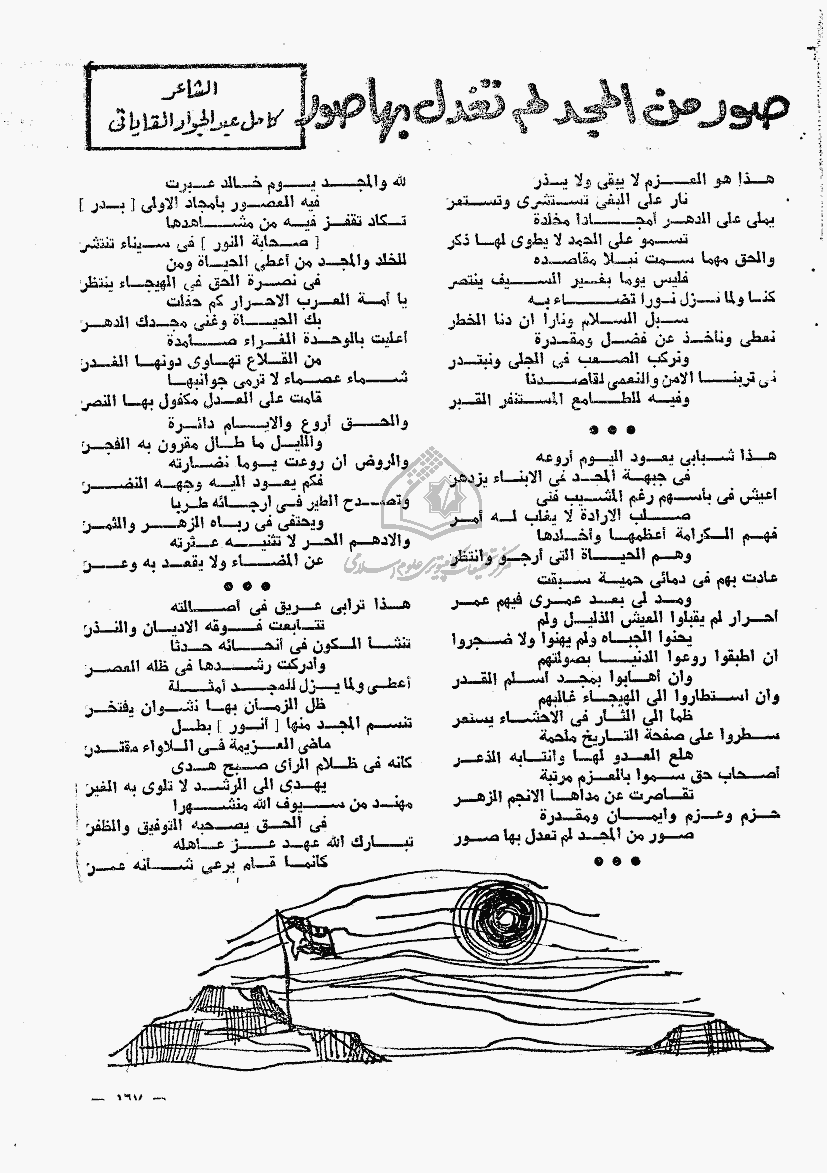 صور من المجد لم تعدل بها صور
الشاعر
كامل عبد الجواد القاياتى
هذا هو العزم لا يبقى ولا يذر
نار على البغى تستشرى وتستعر
يملى على الدهر أمجادا مخلدة
تسمو على الحمد لا يطوى لها ذكر
والحق مهما سمت نبلا مقاصده
فليس يوما بغير السيف ينتصر
كنا ولما نزل نورا تضاء به
سبل السلام ونارا ان دنا الخطر
نعطى ونأخذ عن فضل ومقدرة
ونركب الصعب فى الجلى ونبتدر
فى تربنا الامن والنعمى لقاصدنا
وفيه للطامع المستنفر القبر
هذا شبابى يعود اليوم أروعه
فى جبهة المجد فى الابناء يزدهر
أعيش فى بأسهم رغم المشيب فتى
صلب الارادة لا يغلب له أمر
فهم الكرامة أعظمها وأخلدها
وهم الحياة التى أرجو وانتظر
عادت بهم فى دمائى حمية سبقت
ومد لى بعد عمرى فيهم عمر
أحرار لم يقبلوا العيش الذليل ولم
يحنوا الجباه ولم يهنوا ولا ضجروا
ان اطبقوا روعوا الدنيا بصولتهم
وان أهابوا بمجد أسلم القدر
وان استطاروا الى الهيجاء غالبهم
ظما الى الثار فى الاحشاء يستعر
سطروا على صفحة التاريخ ملحمة
هلع العدو لها وانتابه الذعر
أصحاب حق سموا بالعزم مرتبة
تقاصرت عن مداها الانجم الزهر
حزم وعزم وايمان ومقدرة
صور من المجد لم تعدل بها صور
لله والمجد يوم خالد عبرت
فيه العصور بأمجاد الاولى [ بدر ]
تكاد تقفز فيه من مشاهدها
[ صحابة النور ] فى سيناء تنتشر
للخلد والمجد من أعطى الحياة ومن
فى نصرة الحق فى الهيجاء ينتظر
يا أمة العرب الاحرار كم حفلت
بك الحياة وغنى مجدك الدهر
أعليت بالوحدة الغراء صامدة
من القلاع تهاوى دونها الغدر
شماء عصماء لا ترمى جوانبها
قامت على العدل مكفول بها النصر
والحق أروع والايام دائرة
والليل ما طال مقرون به الفجر
والروض ان روعت يوما نضارته
فكم يعود اليه وجهه النضر
وتصدح الطير فى أرجائه طربا
ويحتفى فى رباه الزهر والثمر
والادهم الحر لا تثنيه عثرته
عن المضاء ولا يقعد به وعر
هذا ترابى عريق فى أصالته
تتابعت فوقه الاديان والنذر
تنشأ الكون فى أنحائه حدثا
وأدركت رشدها فى ظله العصر
أعطى ولما يزل للمجد أمثلة
ظل الزمان بها نشوان يفتخر
تنسم المجد منها [ أنور ] بطل
ماضى العزيمة فى اللاواء مقتدر
كأنه فى ظلام الرأى صبح هدى
يهدى الى الرشد لا تلوى به الغير
مهند من سيوف الله منشهرا
فى الحق يصحبه التوفيق والظفر
تبارك الله عهد عز عاهله
كأنما قام يرعى شأنه عمر
مركز تحقیقات کامپیوتری علوم اسلامی
— ١٦٧ —